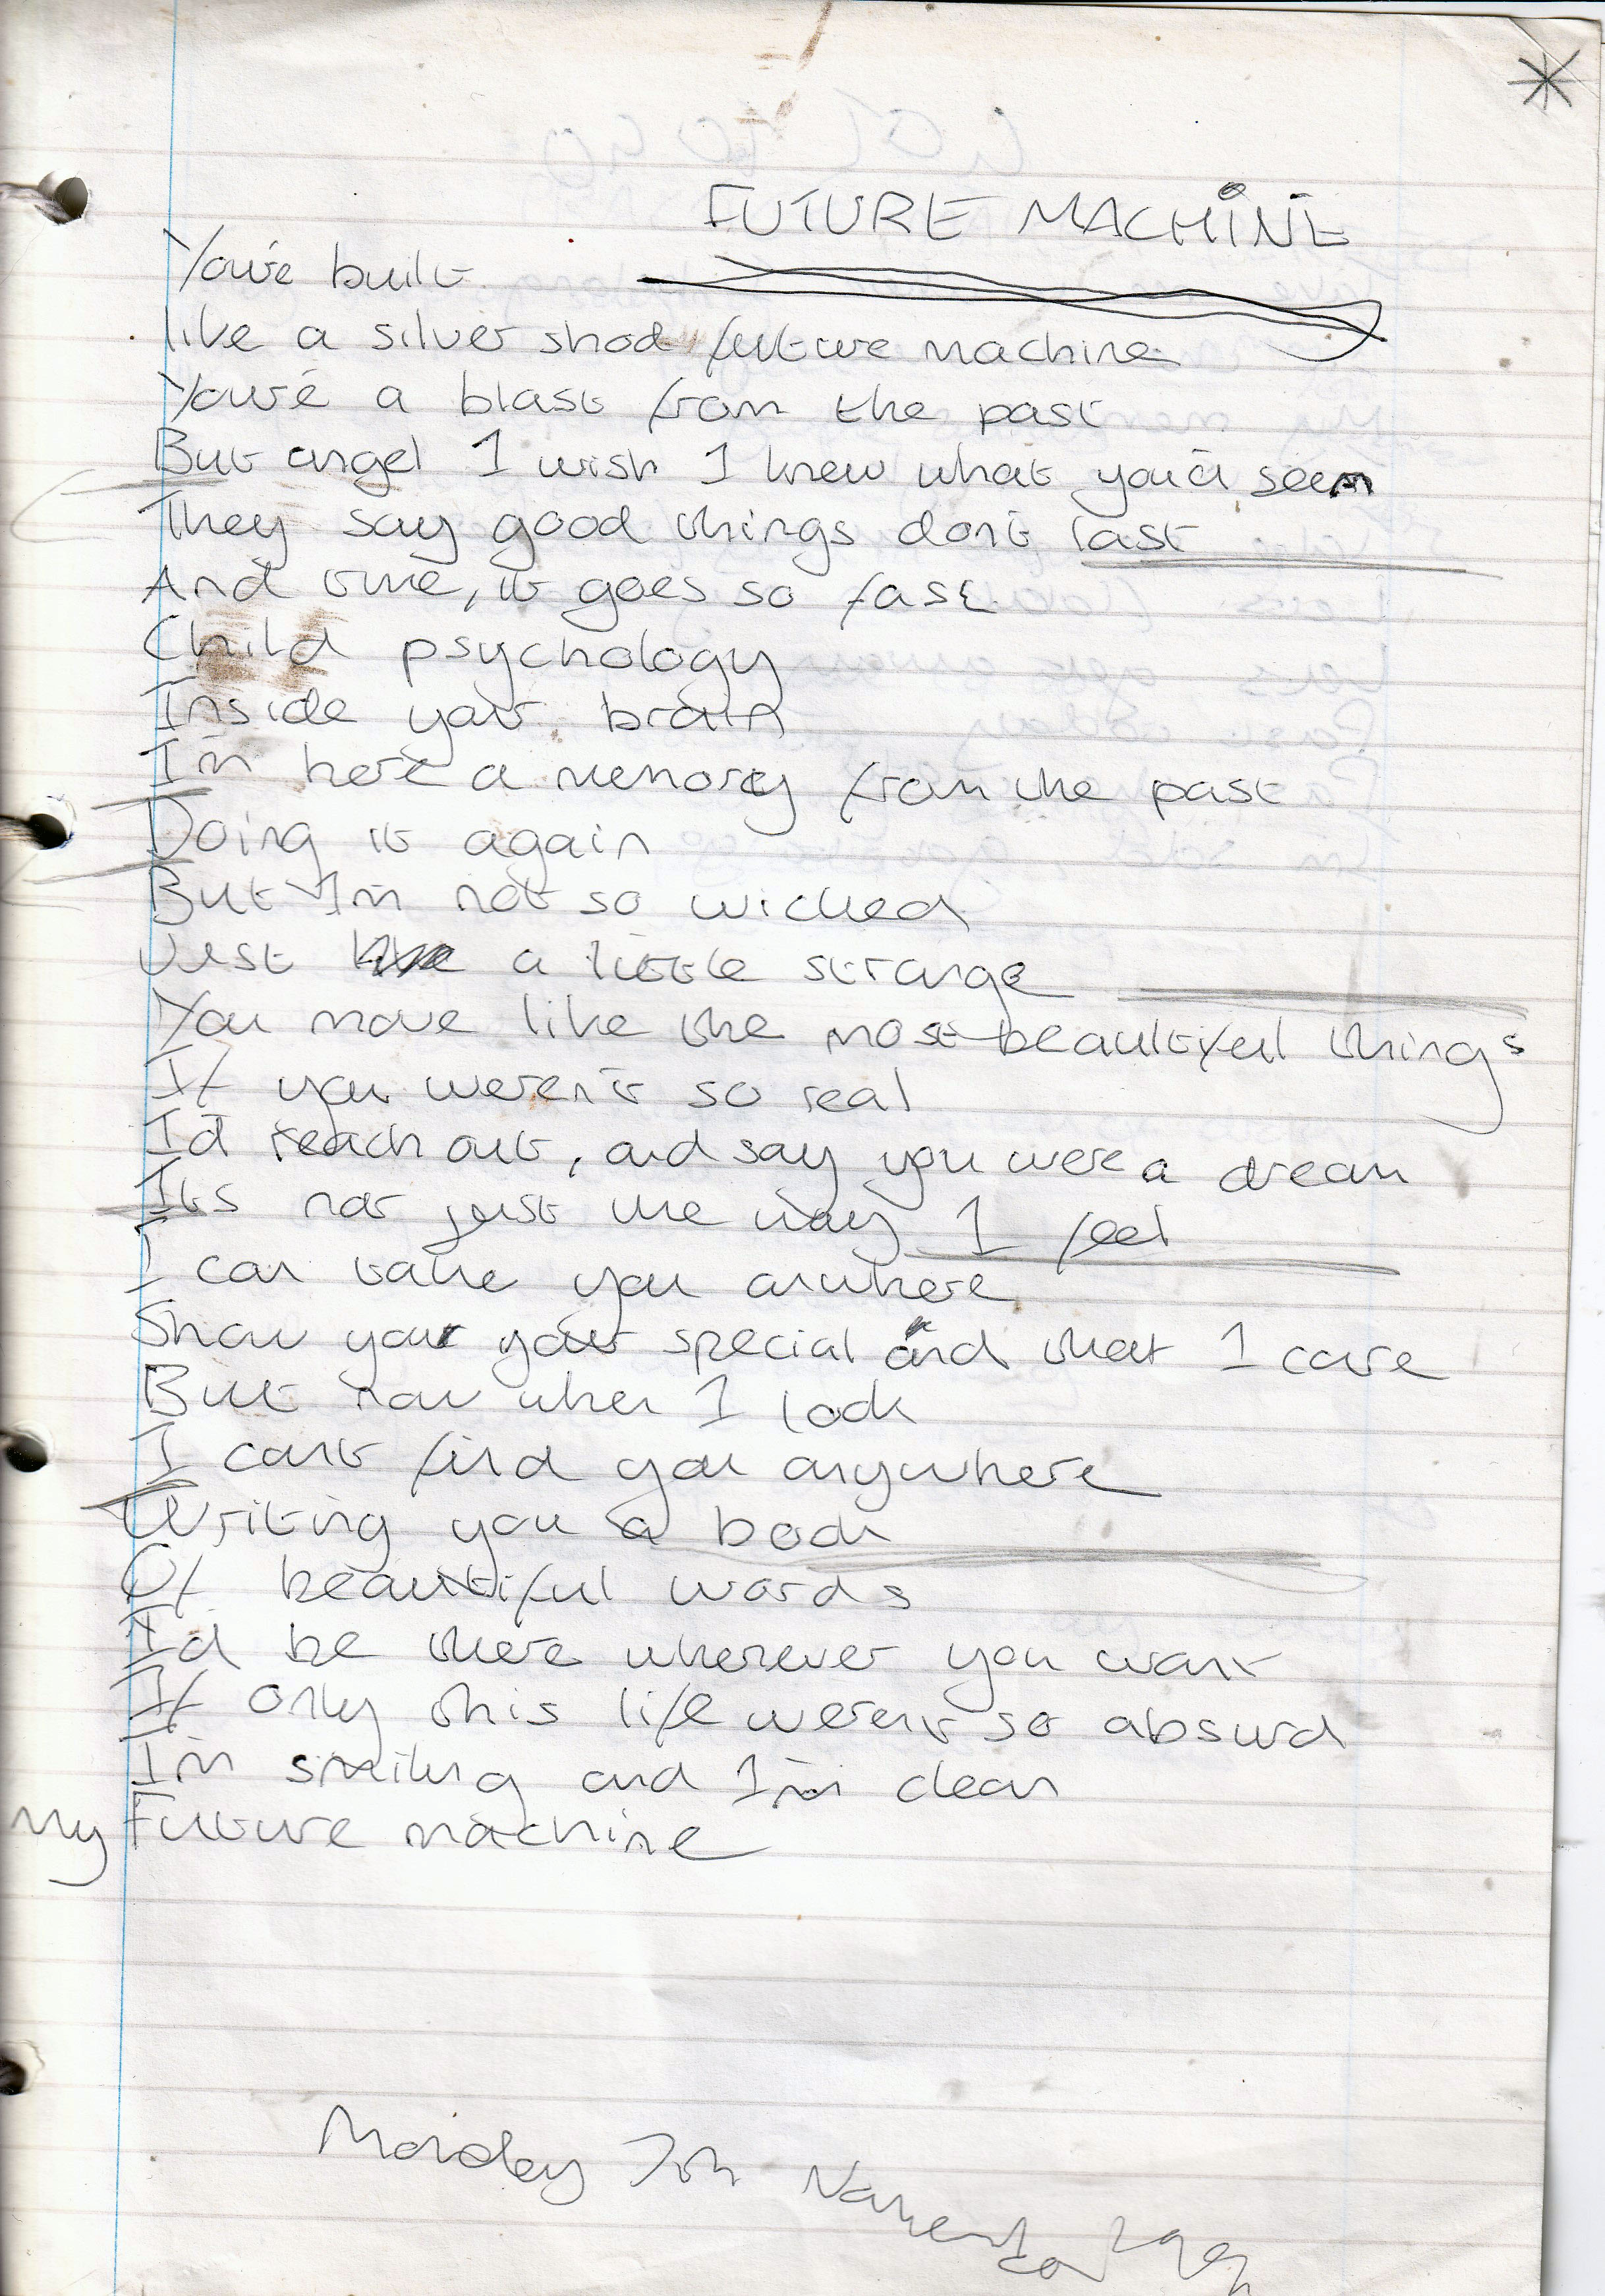 FUTURE MACHINE
You're built
like a silver shod future machine
You're a blast from the past
But angel I wish I knew what you'd seen
They say good things don't last
And time, it goes so fast
Child psychology
Inside your brain
I'm here a memory from the past
Doing it again
But I'm not so wicked
Just a little strange
You move like the most beautiful things
If you weren't so real
I'd reach out, and say you were a dream
Its not just the way I feel
I can take you anwhere
Show you your special and that I care
But now when I look
I cant find you anywhere
Writing you a book
Of beautiful words
I'd be there wherever you want
If only this life weren't so absurd
I'm smiling and I'm clean
My Future machine
Monday 7th November